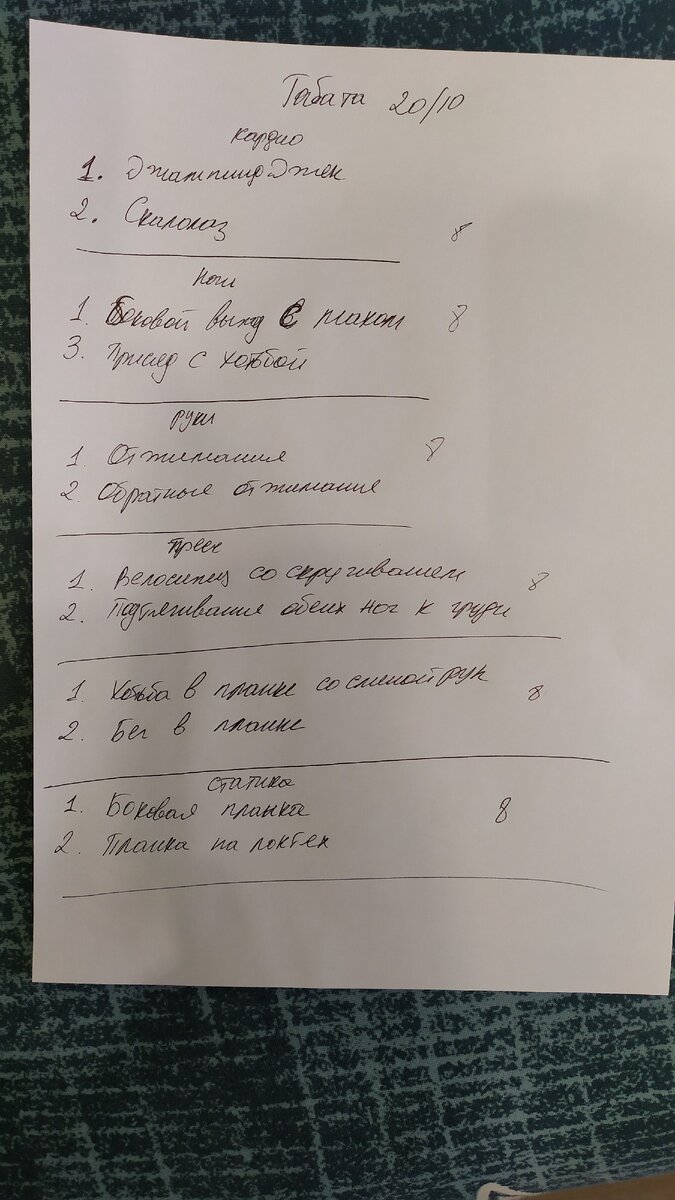 Табата 20/10
Кардио
1. Джампинг Джек
2. Скалолаз 8
Ноги
1. Боковой выпад с махом 8
3. Присед с ходьбой
Руки
1. Отжимания 8
2. Обратные отжимания
Пресс
1. Велосипед со скручиванием 8
2. Подтягивания обеих ног к груди
1. Ходьба в планке со сменой рук 8
2. Бег в планке
Статика
1. Боковая планка 8
2. Планка на локтях